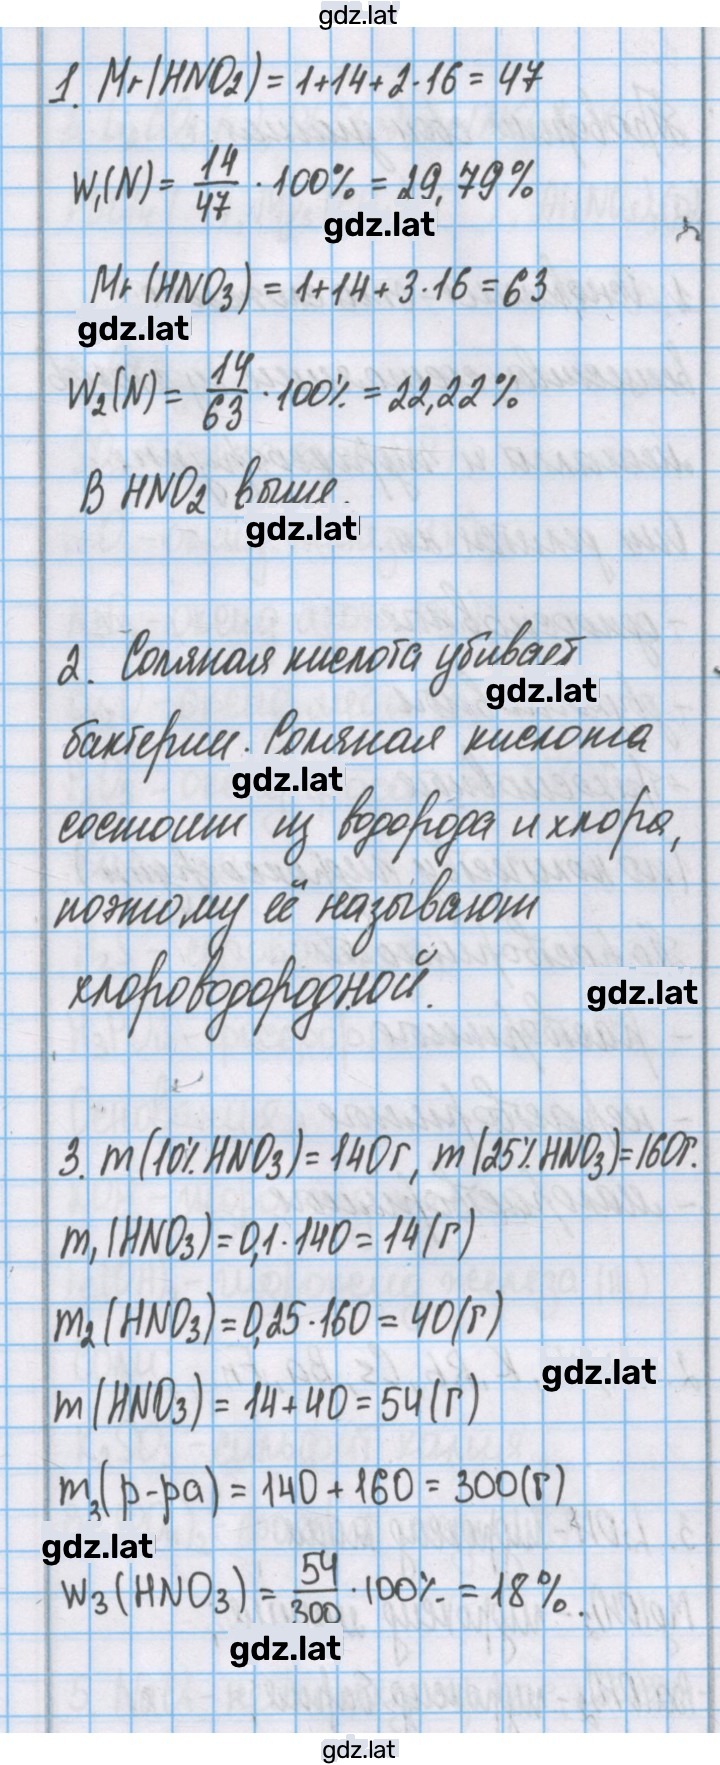 gdz.lat
1. Mr(HNO2) = 1+14+2·16 = 47
W1(N) = 14/47 · 100% = 29,79%
gdz.lat
Mr(HNO3) = 1+14+3·16 = 63
gdz.lat
W2(N) = 14/63 · 100% = 22,22%
В HNO2 выше.
gdz.lat
2. Соляная кислота убивает
gdz.lat
бактерии. Соляная кислота
gdz.lat
состоит из водорода и хлора,
поэтому её называют
хлороводородной.
gdz.lat
3. m(10% HNO3) = 140г, m(25% HNO3) = 160г.
m1(HNO3) = 0,1·140 = 14(г)
m2(HNO3) = 0,25·160 = 40(г)
gdz.lat
m(HNO3) = 14+40 = 54(г)
m3(р-ра) = 140+160 = 300(г)
gdz.lat
W3(HNO3) = 54/300 · 100% = 18%.
gdz.lat
gdz.lat